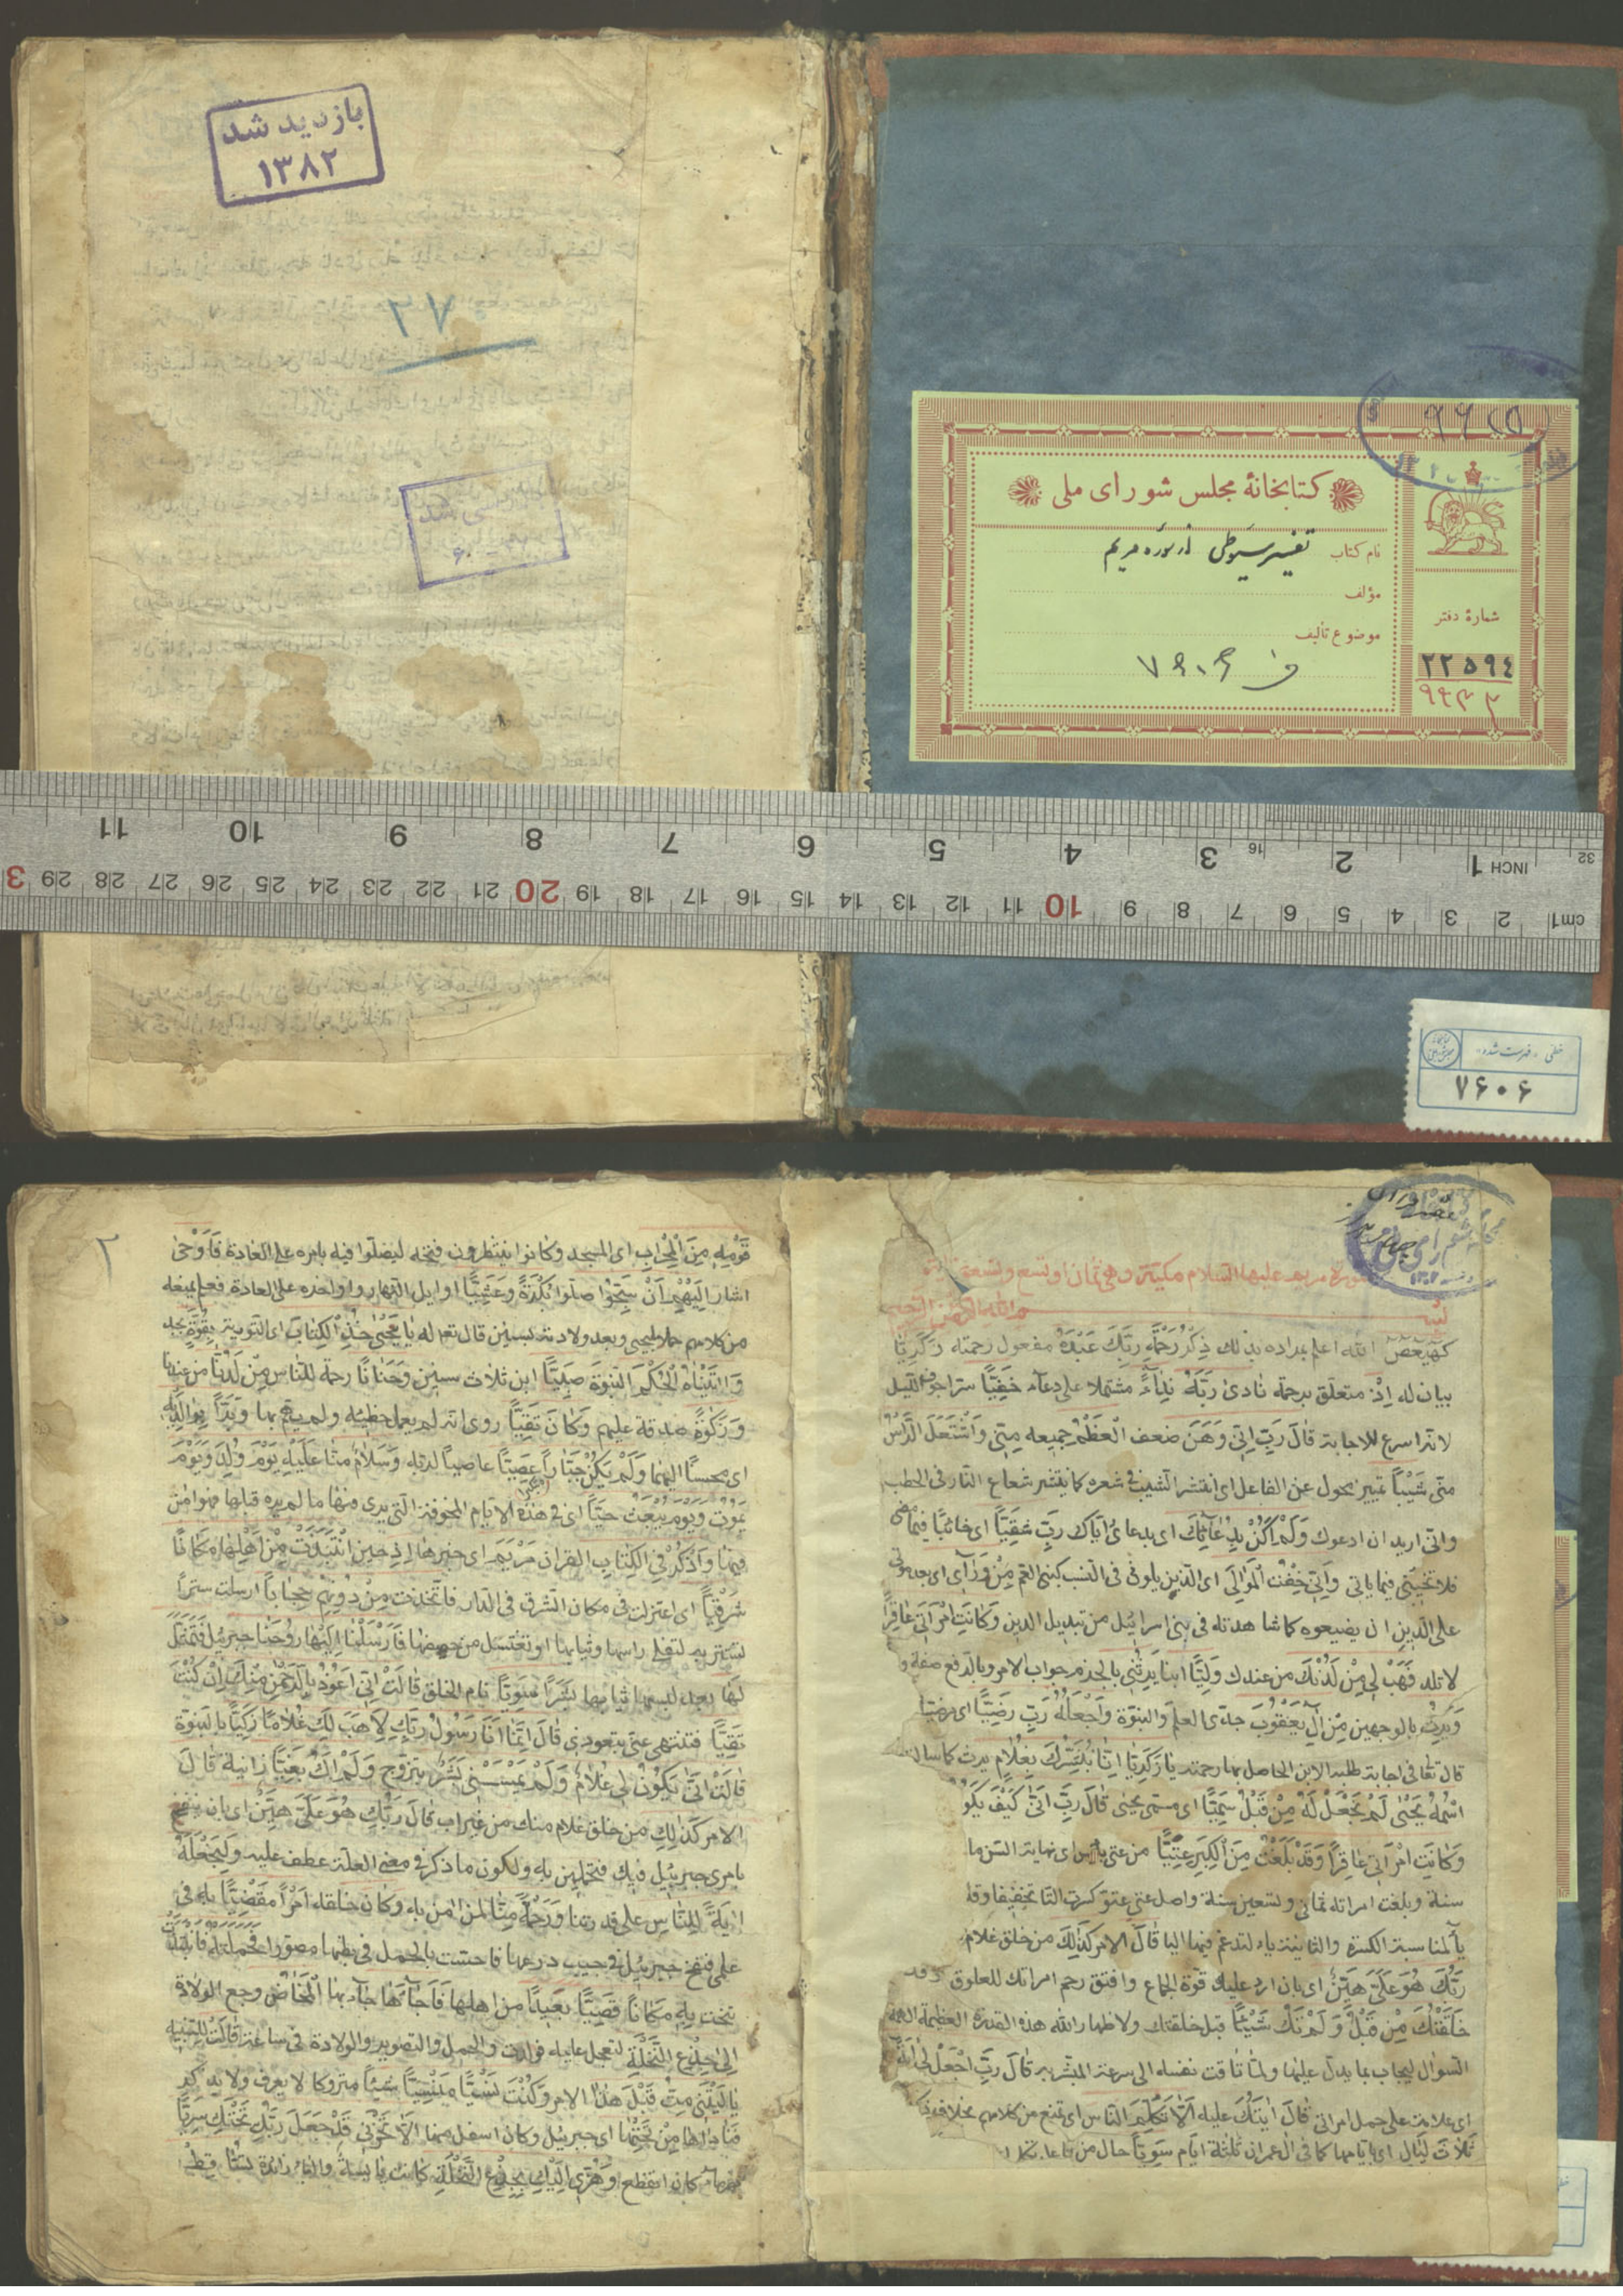 بازدید شد
۱۳۸۲
۲۷
کتابخانهٔ مجلس شورای ملی
نام کتاب تفسیر سیوطی از سوره مریم
مؤلف
موضوع تألیف
شمارهٔ دفتر
۲۲۵۹٤
خطی - فهرست شده
۷۶۰۶
11 10 9 8 7 6 5 4 3 2 1 INCH
16
32
3 29 28 27 26 25 24 23 22 21 20 19 18 17 16 15 14 13 12 11 10 9 8 7 6 5 4 3 2 cm1
سورة مريم عليها السلام مكية وهى ثمان او تسع وتسعون اية
بسم الله الرحمن الرحيم
كهيعص الله اعلم بمراده بذلك ذِكْرُ رَحْمَةِ رَبِّكَ عَبْدَهُ مفعول رحمته زَكَرِيَّا
بيان له اِذْ متعلق برحمة نَادٰى رَبَّهُ نِدَاءً مشتملا على دعآء خَفِيًّا سترا جوف الليل
لانه اسرع للاجابة قَالَ رَبِّ اِنِّى وَهَنَ ضعف الْعَظْمُ جميعه مِنِّى وَاشْتَعَلَ الرَّاْسُ
منّى شَيْبًا تمييز محول عن الفاعل اى انتشر الشيب فى شعره كما ينتشر شعاع النار فى الحطب
وانى اريد ان ادعوك وَلَمْ اَكُنْ بِدُعَآئِكَ اى بدعائى اياك رَبِّ شَقِيًّا اى خائبا فيما مضى
فلا تخيبنى فيما ياتى وَاِنِّى خِفْتُ الْمَوَالِىَ اى الذين يلونى فى النسب كبنى العم مِنْ وَرَآئِى اى بعد موتى
على الدين ان يضيعوه كما شاهدته فى بنى اسرائيل من تبديل الدين وَكَانَتِ امْرَاَتِى عَاقِرًا
لا تلد فَهَبْ لِى مِنْ لَدُنْكَ من عندك وَلِيًّا ابنا يَرِثُنِى بالجزم جواب الامر وبالرفع صفة وليا
وَيَرِثُ بالوجهين مِنْ اٰلِ يَعْقُوبَ جدى العلم والنبوة وَاجْعَلْهُ رَبِّ رَضِيًّا اى مرضيا
قال تعالى فى اجابة طلبه الابن الحاصل بها رحمته يَا زَكَرِيَّا اِنَّا نُبَشِّرُكَ بِغُلَامٍ يرث كما سالت
اسْمُهُ يَحْيٰى لَمْ نَجْعَلْ لَهُ مِنْ قَبْلُ سَمِيًّا اى مسمى بيحيى قَالَ رَبِّ اَنّٰى كيف يَكُونُ
وَكَانَتِ امْرَاَتِى عَاقِرًا وَقَدْ بَلَغْتُ مِنَ الْكِبَرِ عِتِيًّا من عتى يبس اى نهاية السن ما
سنة وبلغت امراته ثمانى وتسعين سنة واصل عتى عتوو كسرت التا تخفيفا وقلبت
يآ لمناسبة الكسرة والثانية ياء لتدغم فيها اليا قَالَ الامر كَذٰلِكَ من خلق غلام
رَبُّكَ هُوَ عَلَىَّ هَيِّنٌ اى بان ارد عليك قوة الجماع وافتق رحم امراتك للعلوق وقد
خَلَقْتُكَ مِنْ قَبْلُ وَلَمْ تَكُ شَيْئًا قبل خلقتك ولاظهار الله هذه القدرة العظيمة الهمه
السؤال ليجاب بما يدل عليها ولما تاقت نفسه الى سرعة المبشر به قَالَ رَبِّ اجْعَلْ لِى اٰيَةً
اى علامة على حمل امراتى قَالَ اٰيَتُكَ عليه اَلَّا تُكَلِّمَ النَّاسَ اى تمتنع من كلامهم بخلاف ذكر
ثَلَاثَ لَيَالٍ اى بايامها كما فى آل عمران ثلثة ايام سَوِيًّا حال من فاعل تكلم
۲
قَوْمِهِ مِنَ الْمِحْرَابِ اى المسجد وكانوا ينتظرون فتحه ليصلوا فيه بامره على العادة فَاَوْحٰى
اشار اِلَيْهِمْ اَنْ سَبِّحُوا صلوا بُكْرَةً وَعَشِيًّا اوايل النهار واواخره على العادة فعلم بمنعه
من كلامهم حملها بيحيى وبعد ولادته بسنين قال تعالى له يَا يَحْيٰى خُذِ الْكِتَابَ اى التورية بِقُوَّةٍ بجد
وَاٰتَيْنَاهُ الْحُكْمَ النبوة صَبِيًّا ابن ثلاث سنين وَحَنَانًا رحمة للناس مِنْ لَدُنَّا من عندنا
وَزَكٰوةً صدقة عليهم وَكَانَ تَقِيًّا روى انه لم يعمل خطيئة ولم يهم بها وَبَرًّا بِوَالِدَيْهِ
اى محسنا اليهما وَلَمْ يَكُنْ جَبَّارًا عَصِيًّا عاصيا لربه وَسَلَامٌ منا عَلَيْهِ يَوْمَ وُلِدَ وَيَوْمَ
يَمُوتُ وَيَوْمَ يُبْعَثُ حَيًّا اى فى هذه الايام المخوفة التى يرى فيها ما لم يره قبلها فهو امن
فيها وَاذْكُرْ فِى الْكِتَابِ القران مَرْيَمَ اى خبرها اِذِ حين انْتَبَذَتْ مِنْ اَهْلِهَا مَكَانًا
شَرْقِيًّا اى اعتزلت فى مكان الشرق فى الدار فَاتَّخَذَتْ مِنْ دُونِهِمْ حِجَابًا ارسلت سترا
تستتر به لتفلى راسها وثيابها او تغتسل من حيضها فَاَرْسَلْنَا اِلَيْهَا رُوحَنَا جبريل فَتَمَثَّلَ
لَهَا بعد لبسها ثيابها بَشَرًا سَوِيًّا تام الخلق قَالَتْ اِنِّى اَعُوذُ بِالرَّحْمٰنِ مِنْكَ اِنْ كُنْتَ
تَقِيًّا فتنتهى عنى بتعوذى قَالَ اِنَّمَا اَنَا رَسُولُ رَبِّكِ لِاَهَبَ لَكِ غُلَامًا زَكِيًّا بالنبوة
قَالَتْ اَنّٰى يَكُونُ لِى غُلَامٌ وَلَمْ يَمْسَسْنِى بَشَرٌ بتزوج وَلَمْ اَكُ بَغِيًّا زانية قَالَ
الامر كَذٰلِكِ من خلق غلام منك من غير اب قَالَ رَبُّكِ هُوَ عَلَىَّ هَيِّنٌ اى بان ينفخ
بامرى جبريل فيك فتحملين به ولكون ما ذكر فى معنى العلة عطف عليه وَلِنَجْعَلَهُ
اٰيَةً لِلنَّاسِ على قدرتنا وَرَحْمَةً مِنَّا لمن امن به وَكَانَ خلقه اَمْرًا مَقْضِيًّا به فى
علمى فنفخ جبريل فى جيب درعها فاحست بالحمل فى بطنها مصورا فَحَمَلَتْهُ فَانْتَبَذَتْ
تنحت بِهِ مَكَانًا قَصِيًّا بعيدا من اهلها فَاَجَآءَهَا جآء بها الْمَخَاضُ وجع الولادة
اِلٰى جِذْعِ النَّخْلَةِ لتعتمل عليه فولدت والحمل والتصوير والولادة فى ساعة قَالَتْ للتنبيه
يَا لَيْتَنِى مِتُّ قَبْلَ هٰذَا الامر وَكُنْتُ نَسْيًا مَنْسِيًّا شيئا متروكا لا يعرف ولا يذكر
فَنَادٰهَا مِنْ تَحْتِهَا اى جبريل وكان اسفل منها اَلَّا تَحْزَنِى قَدْ جَعَلَ رَبُّكِ تَحْتَكِ سَرِيًّا
نهر ماء كان انقطع وَهُزِّى اِلَيْكِ بِجِذْعِ النَّخْلَةِ كانت يابسة والباء زائدة تُسَاقِطْ